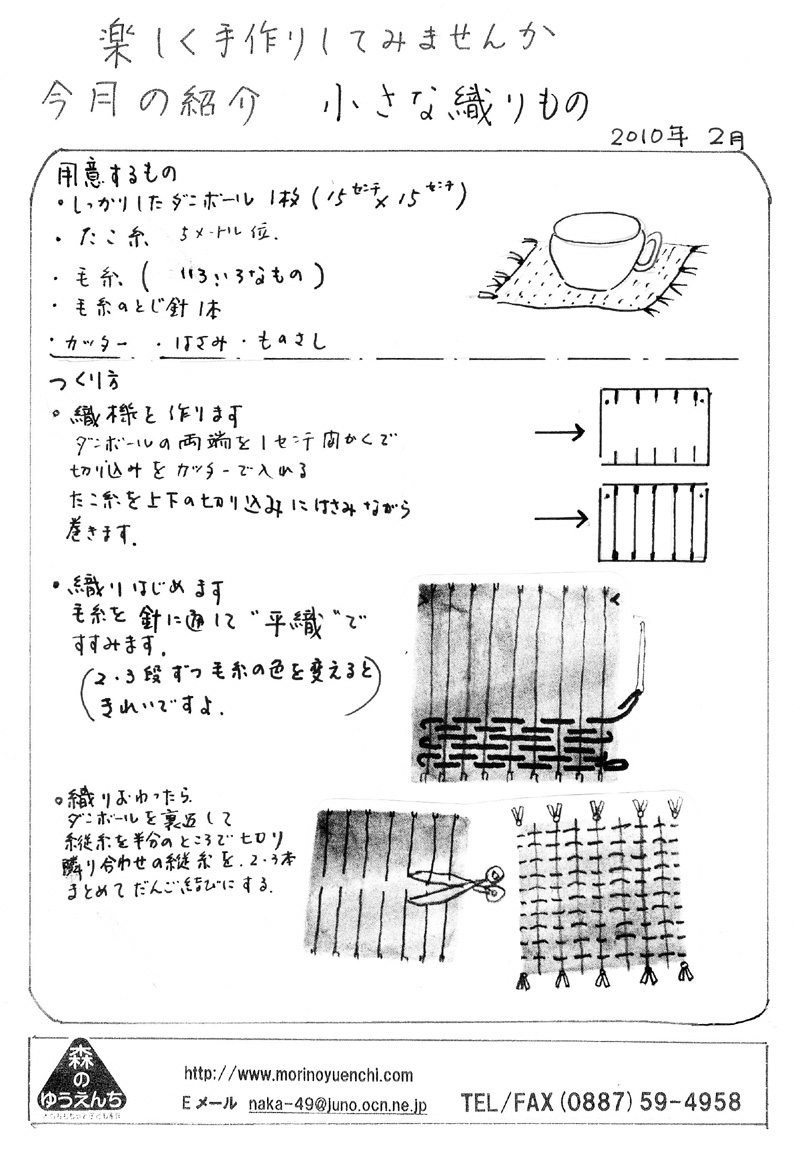 楽しく手作りしてみませんか
今月の紹介 小さな織りもの
2010年 2月
用意するもの
・しっかりしたダンボール 1枚 (15センチ×15センチ)
・たこ糸 5メートル位.
・毛糸 (いろいろなもの)
・毛糸のとじ針 1本
・カッター ・はさみ ・ものさし
つくり方
○ 織機を作ります
ダンボールの両端を1センチ間かくで
切り込みをカッターで入れる
たこ糸を上下の切り込みにはさみながら
巻きます.
・織りはじめます
毛糸を針に通して"平織"で
すすみます.
(2.3段ずつ毛糸の色を変えると
きれいですよ.)
○織りおわったら.
ダンボールを裏返して
糸縦糸を半分のところで切り
隣り合わせの縦糸を.2.3本
まとめてだんご結びにする.
森の
ゆうえんち
http://www.morinoyuenchi.com
Eメール naka-49@juno.ocn.ne.jp
TEL/FAX(0887)59-4958